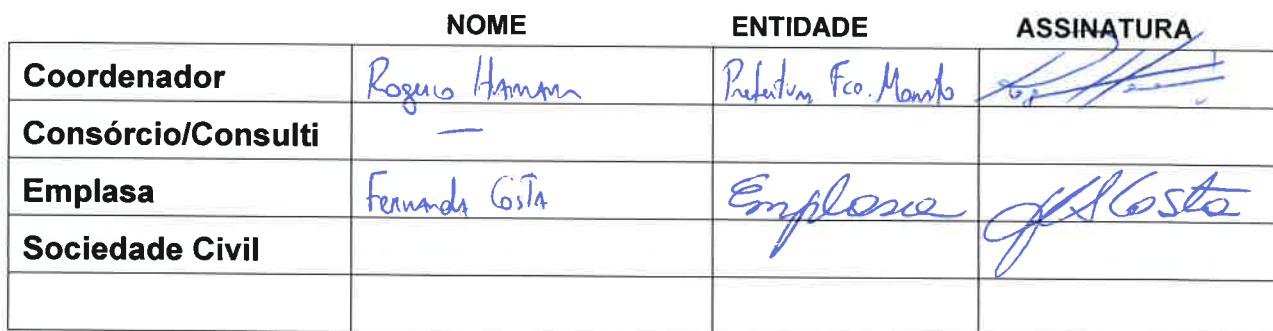 NOME ENTIDADE ASSINATURA
Coordenador Rogerio Hamam Prefeitura Fco. Morato
Consórcio/Consulti —
Emplasa Fernanda Costa Emplasa FSCosta
Sociedade Civil